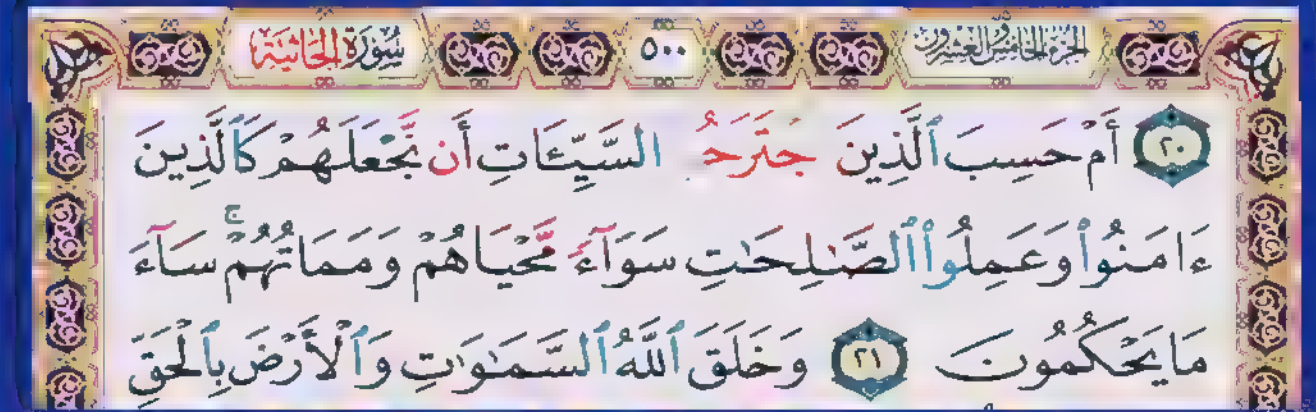 الجزء الخامس والعشرون ٥٠٠ سُورَة الجَاثِيَة
٢٠ أَمْ حَسِبَ ٱلَّذِينَ جتَرَحُ السَّيِّـَٔاتِ أَن نَّجْعَلَهُمْ كَٱلَّذِينَ
ءَامَنُوا۟ وَعَمِلُوا۟ ٱلصَّـٰلِحَـٰتِ سَوَآءَ مَّحْيَاهُمْ وَمَمَاتُهُمْ ۚ سَآءَ
مَا يَحْكُمُونَ ٢١ وَخَلَقَ ٱللَّهُ ٱلسَّمَـٰوَٰتِ وَٱلْأَرْضَ بِٱلْحَقِّ